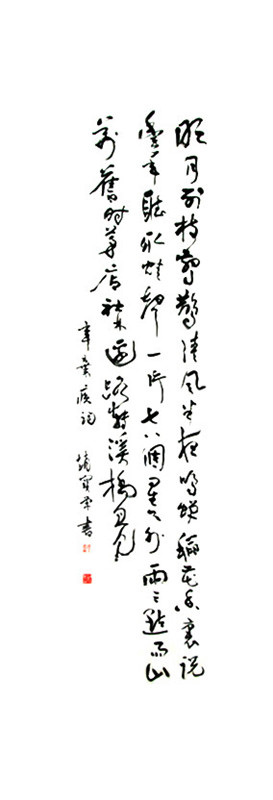 明月別枝驚鵲清風半夜鳴蟬稻花香裏説
豐年聽取蛙聲一片七八個星天外兩三點雨山
前舊時茅店社林邊路轉溪橋忽見
辛棄疾詞 書